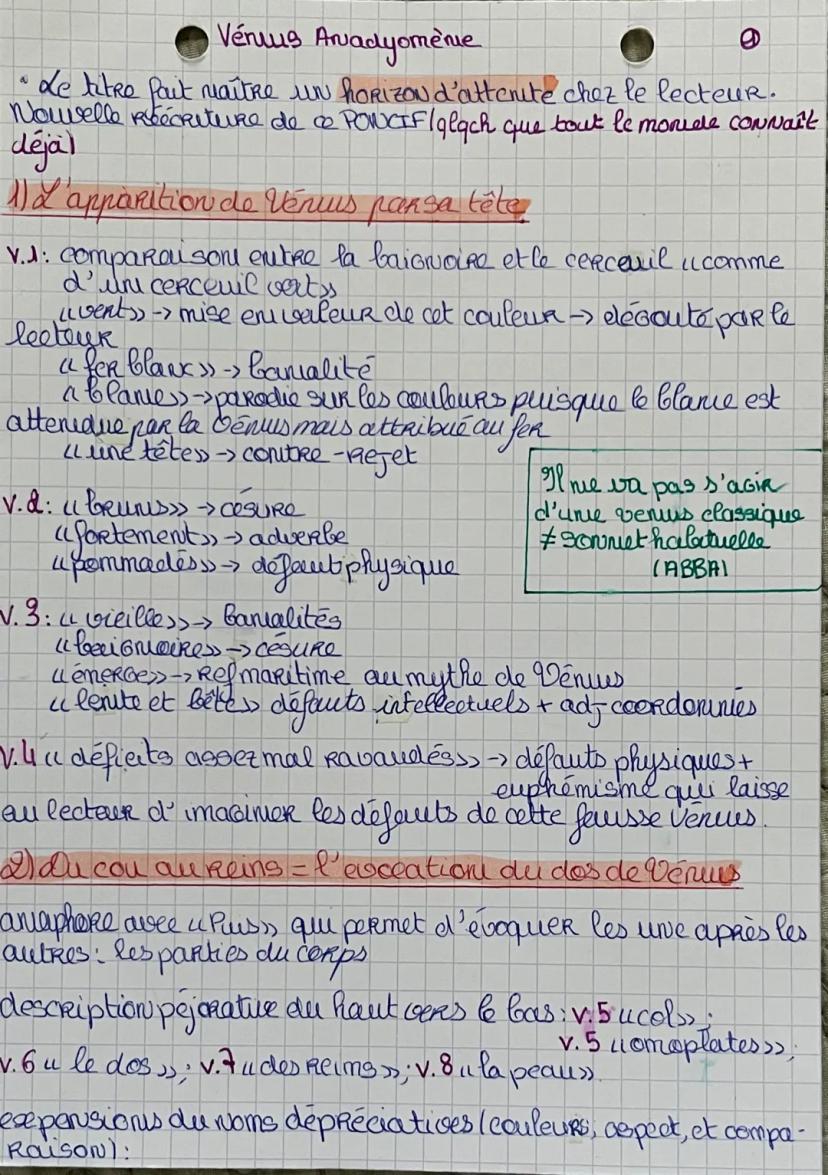 Vénus Anadyomène
1
• Le titre fait naître un horizon d'attente chez le lecteur.
Nouvelle réécriture de ce PONCIF (qlqch que tout le monde connaît
déjà)
1) L'apparition de Vénus par sa tête
v.1: comparaison entre la baignoire et le cerceuil «comme
d'un cerceuil vert»
«vert» -> mise en valeur de cet couleur -> dégouté par le
lecteur
« fer blanc» -> banalité
« blanc» -> parodie sur les couleurs puisque le blanc est
attendue par la Vénus mais attribué au fer
«une tête» -> contre-rejet
Il ne va pas s'agir
d'une venus classique
≠ sonnet habituelle
(ABBA)
v.2: «bruns» -> césure
«fortement» -> adverbe
«pommadés» -> défaut physique
v.3: «vieille» -> banalités
«baignoire» -> césure
«émerge» -> Ref maritime au mythe de Vénus
«lente et bête» défauts intellectuels + adj coordonnés
v.4 « déficits assez mal ravaudés» -> défauts physiques +
euphémisme qui laisse
au lecteur d'imaginer les défauts de cette fausse Vénus.
2) Du cou au reins = l'evocation du dos de Vénus
anaphore avec «Puis» qui permet d'évoquer les une après les
autres: les parties du corps
description péjorative du haut vers le bas: v.5 «col»;
v.5 «omoplates»;
v.6 « le dos»; v.7 «des reins»; v.8 «la peau»
expansions du noms dépréciatives (couleurs, aspect, et compa-
raison):